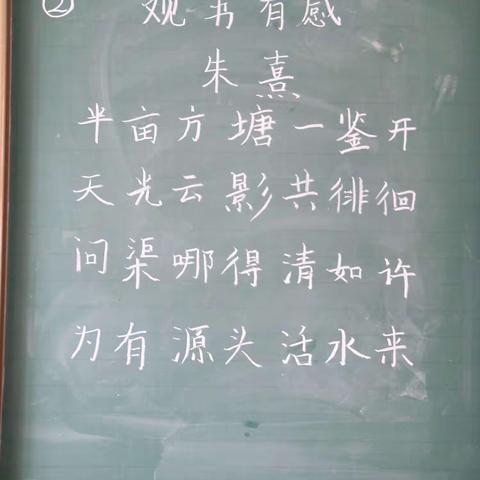 ② 观书有感
朱熹
半亩方塘一鉴开
天光云影共徘徊
问渠哪得清如许
为有源头活水来